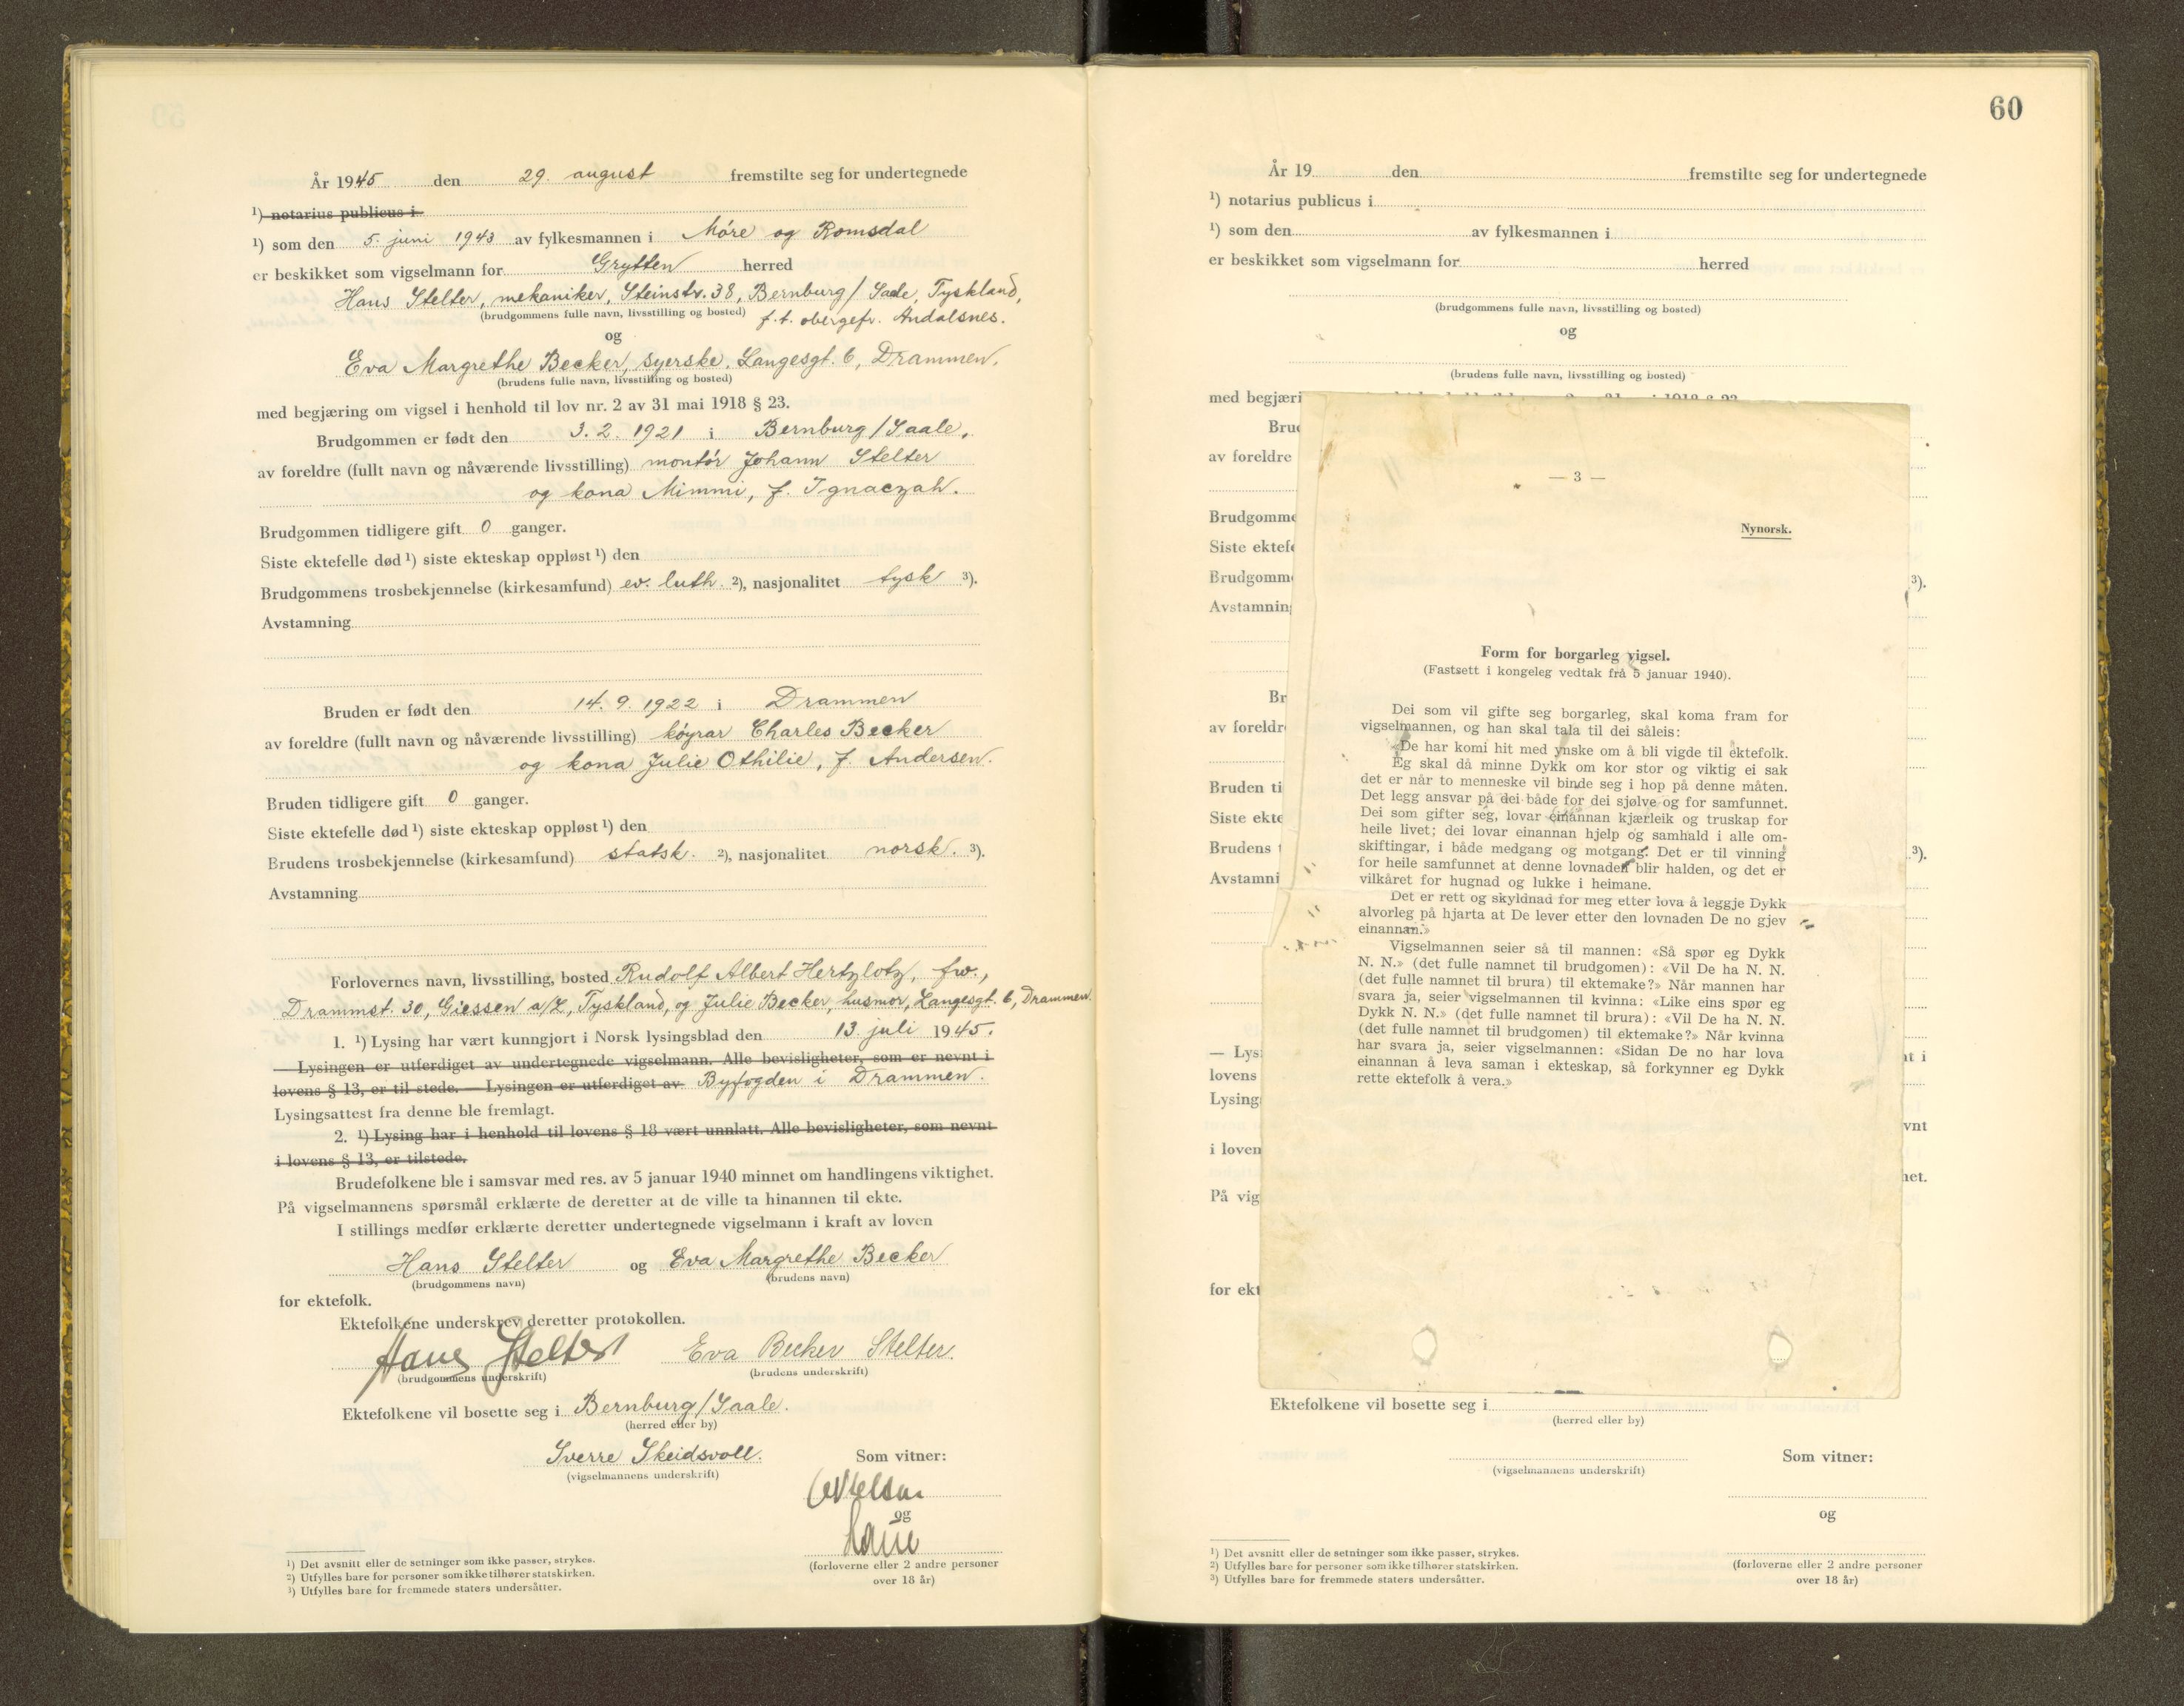 År 1945 den 29. august fremstilte seg for undertegnede
¹) notarius publicus i
¹) som den 5. juni 1943 av fylkesmannen i Møre og Romsdal
er beskikket som vigselmann for Grytten herred
Hans Stelter, mekaniker, Steinstr. 38, Bernburg/Saale, Tyskland,
(brudgommens fulle navn, livsstilling og bosted) f.t. obergefr. Åndalsnes.
og
Eva Margrethe Becker, syerske, Langesgt. 6, Drammen.
(brudens fulle navn, livsstilling og bosted)
med begjæring om vigsel i henhold til lov nr. 2 av 31 mai 1918 § 23.
Brudgommen er født den 3. 2. 1921 i Bernburg/Saale,
av foreldre (fullt navn og nåværende livsstilling) montør Johann Stelter
og kona Mimmi, f. Ignaczah.
Brudgommen tidligere gift 0 ganger.
Siste ektefelle død ¹) siste ekteskap oppløst ¹) den
Brudgommens trosbekjennelse (kirkesamfund) ev. luth. ²), nasjonalitet tysk ³).
Avstamning
Bruden er født den 14. 9. 1922 i Drammen
av foreldre (fullt navn og nåværende livsstilling) køyrar Charles Becker
og kona Julie Othilie, f. Andersen.
Bruden tidligere gift 0 ganger.
Siste ektefelle død ¹) siste ekteskap oppløst ¹) den
Brudens trosbekjennelse (kirkesamfund) statsk. ²), nasjonalitet norsk. ³).
Avstamning
Forlovernes navn, livsstilling, bosted Rudolf Albert Hertzlotz, fw.,
Drammst. 30, Giessen a/L, Tyskland, og Julie Becker, husmor, Langesgt. 6, Drammen.
1. ¹) Lysing har vært kunngjort i Norsk lysingsblad den 13. juli 1945.
— Lysingen er utferdiget av undertegnede vigselmann. Alle bevisligheter, som er nevnt i
lovens § 13, er til stede. — Lysingen er utferdiget av Byfogden i Drammen.
Lysingsattest fra denne ble fremlagt.
2. ¹) Lysing har i henhold til lovens § 18 vært unnlatt. Alle bevisligheter, som nevnt
i lovens § 13, er tilstede.
Brudefolkene ble i samsvar med res. av 5 januar 1940 minnet om handlingens viktighet.
På vigselmannens spørsmål erklærte de deretter at de ville ta hinannen til ekte.
I stillings medfør erklærte deretter undertegnede vigselmann i kraft av loven
Hans Stelter og Eva Margrethe Becker
(brudgommens navn) (brudens navn)
for ektefolk.
Ektefolkene underskrev deretter protokollen.
Hans Stelter Eva Becker Stelter.
(brudgommens underskrift) (brudens underskrift)
Ektefolkene vil bosette seg i Bernburg/Saale.
(herred eller by)
Sverre Skeidsvoll. Som vitner:
(vigselmannens underskrift)
og
(forloverne eller 2 andre personer
over 18 år)
¹) Det avsnitt eller de setninger som ikke passer, strykes.
²) Utfylles bare for personer som ikke tilhører statskirken.
³) Utfylles bare for fremmede staters undersåtter.
60
År 19 den fremstilte seg for undertegnede
¹) notarius publicus i
¹) som den av fylkesmannen i
er beskikket som vigselmann for herred
(brudgommens fulle navn, livsstilling og bosted)
og
(brudens fulle navn, livsstilling og bosted)
med begjæri
Bru
av foreldre
Brudgomme
Siste ektefe
Brudgomm ³).
Avstamning
Br
av foreldr
Bruden ti
Siste ekte
Brudens t ³).
Avstamni
— Lys nt i
lovens
Lysing
vnt
i loven
het.
På vig
for ekt
— 3 —
Nynorsk.
Form for borgarleg vigsel.
(Fastsett i kongeleg vedtak frå 5 januar 1940).
Dei som vil gifte seg borgarleg, skal koma fram for
vigselmannen, og han skal tala til dei såleis:
«De har komi hit med ynske om å bli vigde til ektefolk.
Eg skal då minne Dykk om kor stor og viktig ei sak
det er når to menneske vil binde seg i hop på denne måten.
Det legg ansvar på dei både for dei sjølve og for samfunnet.
Dei som gifter seg, lovar einannan kjærleik og truskap for
heile livet; dei lovar einannan hjelp og samhald i alle om-
skiftingar, i både medgang og motgang. Det er til vinning
for heile samfunnet at denne lovnaden blir halden, og det er
vilkåret for hugnad og lukke i heimane.
Det er rett og skyldnad for meg etter lova å leggje Dykk
alvorleg på hjarta at De lever etter den lovnaden De no gjev
einannan.»
Vigselmannen seier så til mannen: «Så spør eg Dykk
N. N.» (det fulle namnet til brudgomen): «Vil De ha N. N.
(det fulle namnet til brura) til ektemake?» Når mannen har
svara ja, seier vigselmannen til kvinna: «Like eins spør eg
Dykk N. N.» (det fulle namnet til brura): «Vil De ha N. N.
(det fulle namnet til brudgomen) til ektemake?» Når kvinna
har svara ja, seier vigselmannen: «Sidan De no har lova
einannan å leva saman i ekteskap, så forkynner eg Dykk
rette ektefolk å vera.»
Ektefolkene vil bosette seg i
(herred eller by)
Som vitner:
(vigselmannens underskrift)
og
(forloverne eller 2 andre personer
over 18 år)
¹) Det avsnitt eller de setninger som ikke passer, strykes.
²) Utfylles bare for personer som ikke tilhører statskirken.
³) Utfylles bare for fremmede staters undersåtter.